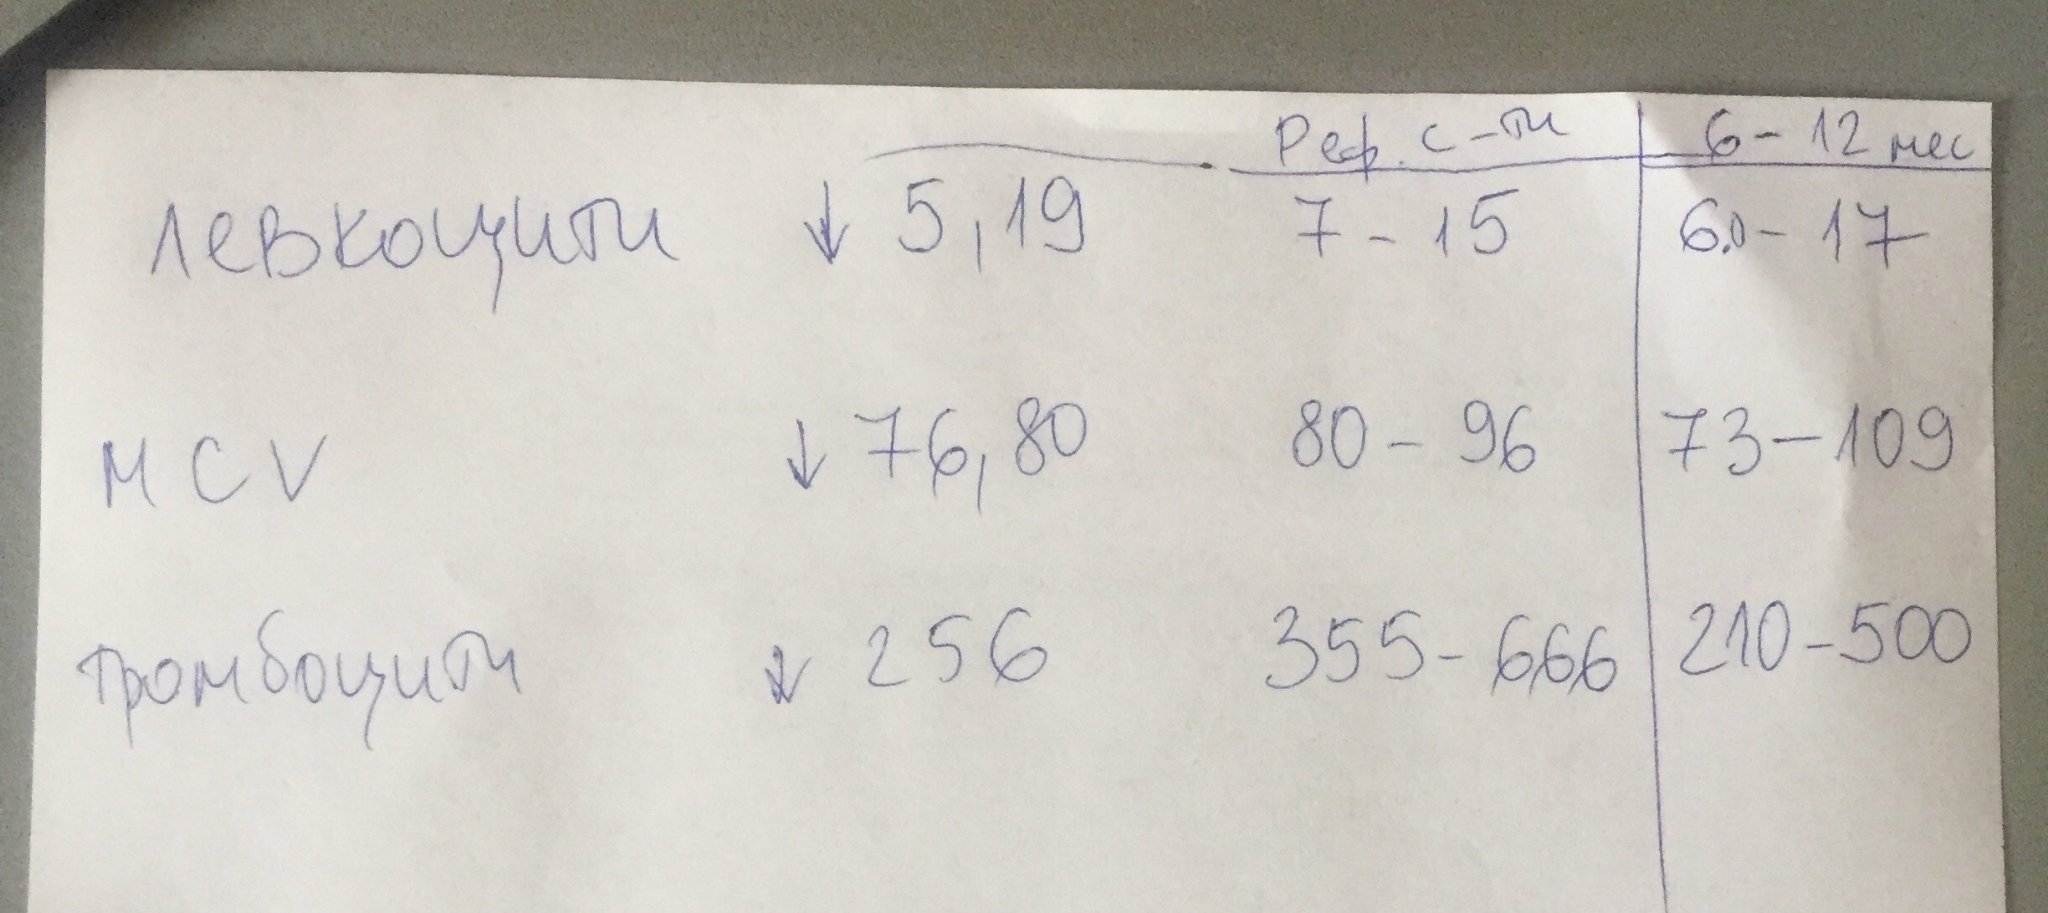 Реф. с-ти 6 - 12 мес
Левкоцити ↓ 5,19 7 - 15 6.0 - 17
MCV ↓ 76,80 80 - 96 73 - 109
Тромбоцити ↓ 256 355 - 666 210 - 500